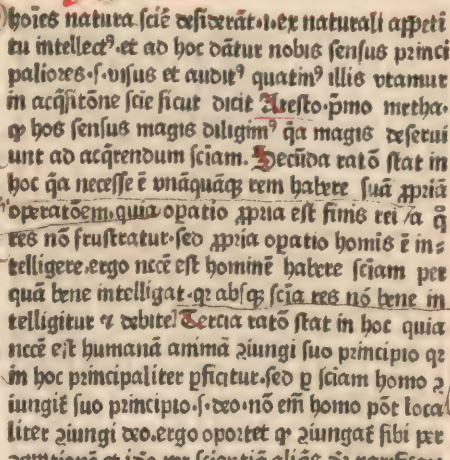 hoīes natura sciē desiderāt·i·ex naturali appeti
tu intellectꝰ·et ad hoc dātur nobis sensus princi
paliores·s·visus et auditꝰ quatinꝰ illis vtamur
in acq̄sitōne scīe sicut dicit Aresto·pmo metha·
ꝙ hos sensus magis diligimꝰ q̄a magis deserui
unt ad acq̄rendum sciam. Secūda ratō stat in
hoc q̄a necesse ē vnāquāqꝫ rem habere suā ꝓpriā
operatōem·quia opatio ꝓpria est finis rei /a q̄
res nō frustratur·sed ꝓpria opatio homīs ē in⸗
telligere·ergo nccē est hominē habere sciam per
quā bene intelligat·qꝛ absqꝫ scīa res nō bene in
telligitur ⁊ debite Tercia ratō stat in hoc quia
nccē est humanā animā ꝯiungi suo principio qꝛ
in hoc principaliter ꝑficitur·sed ꝑ sciam homo ꝯ
iungit̄ suo principio·s·deo·nō em̄ homo pōt loca
liter ꝯiungi deo·ergo oportet ꝙ ꝯiungat̄ sibi per